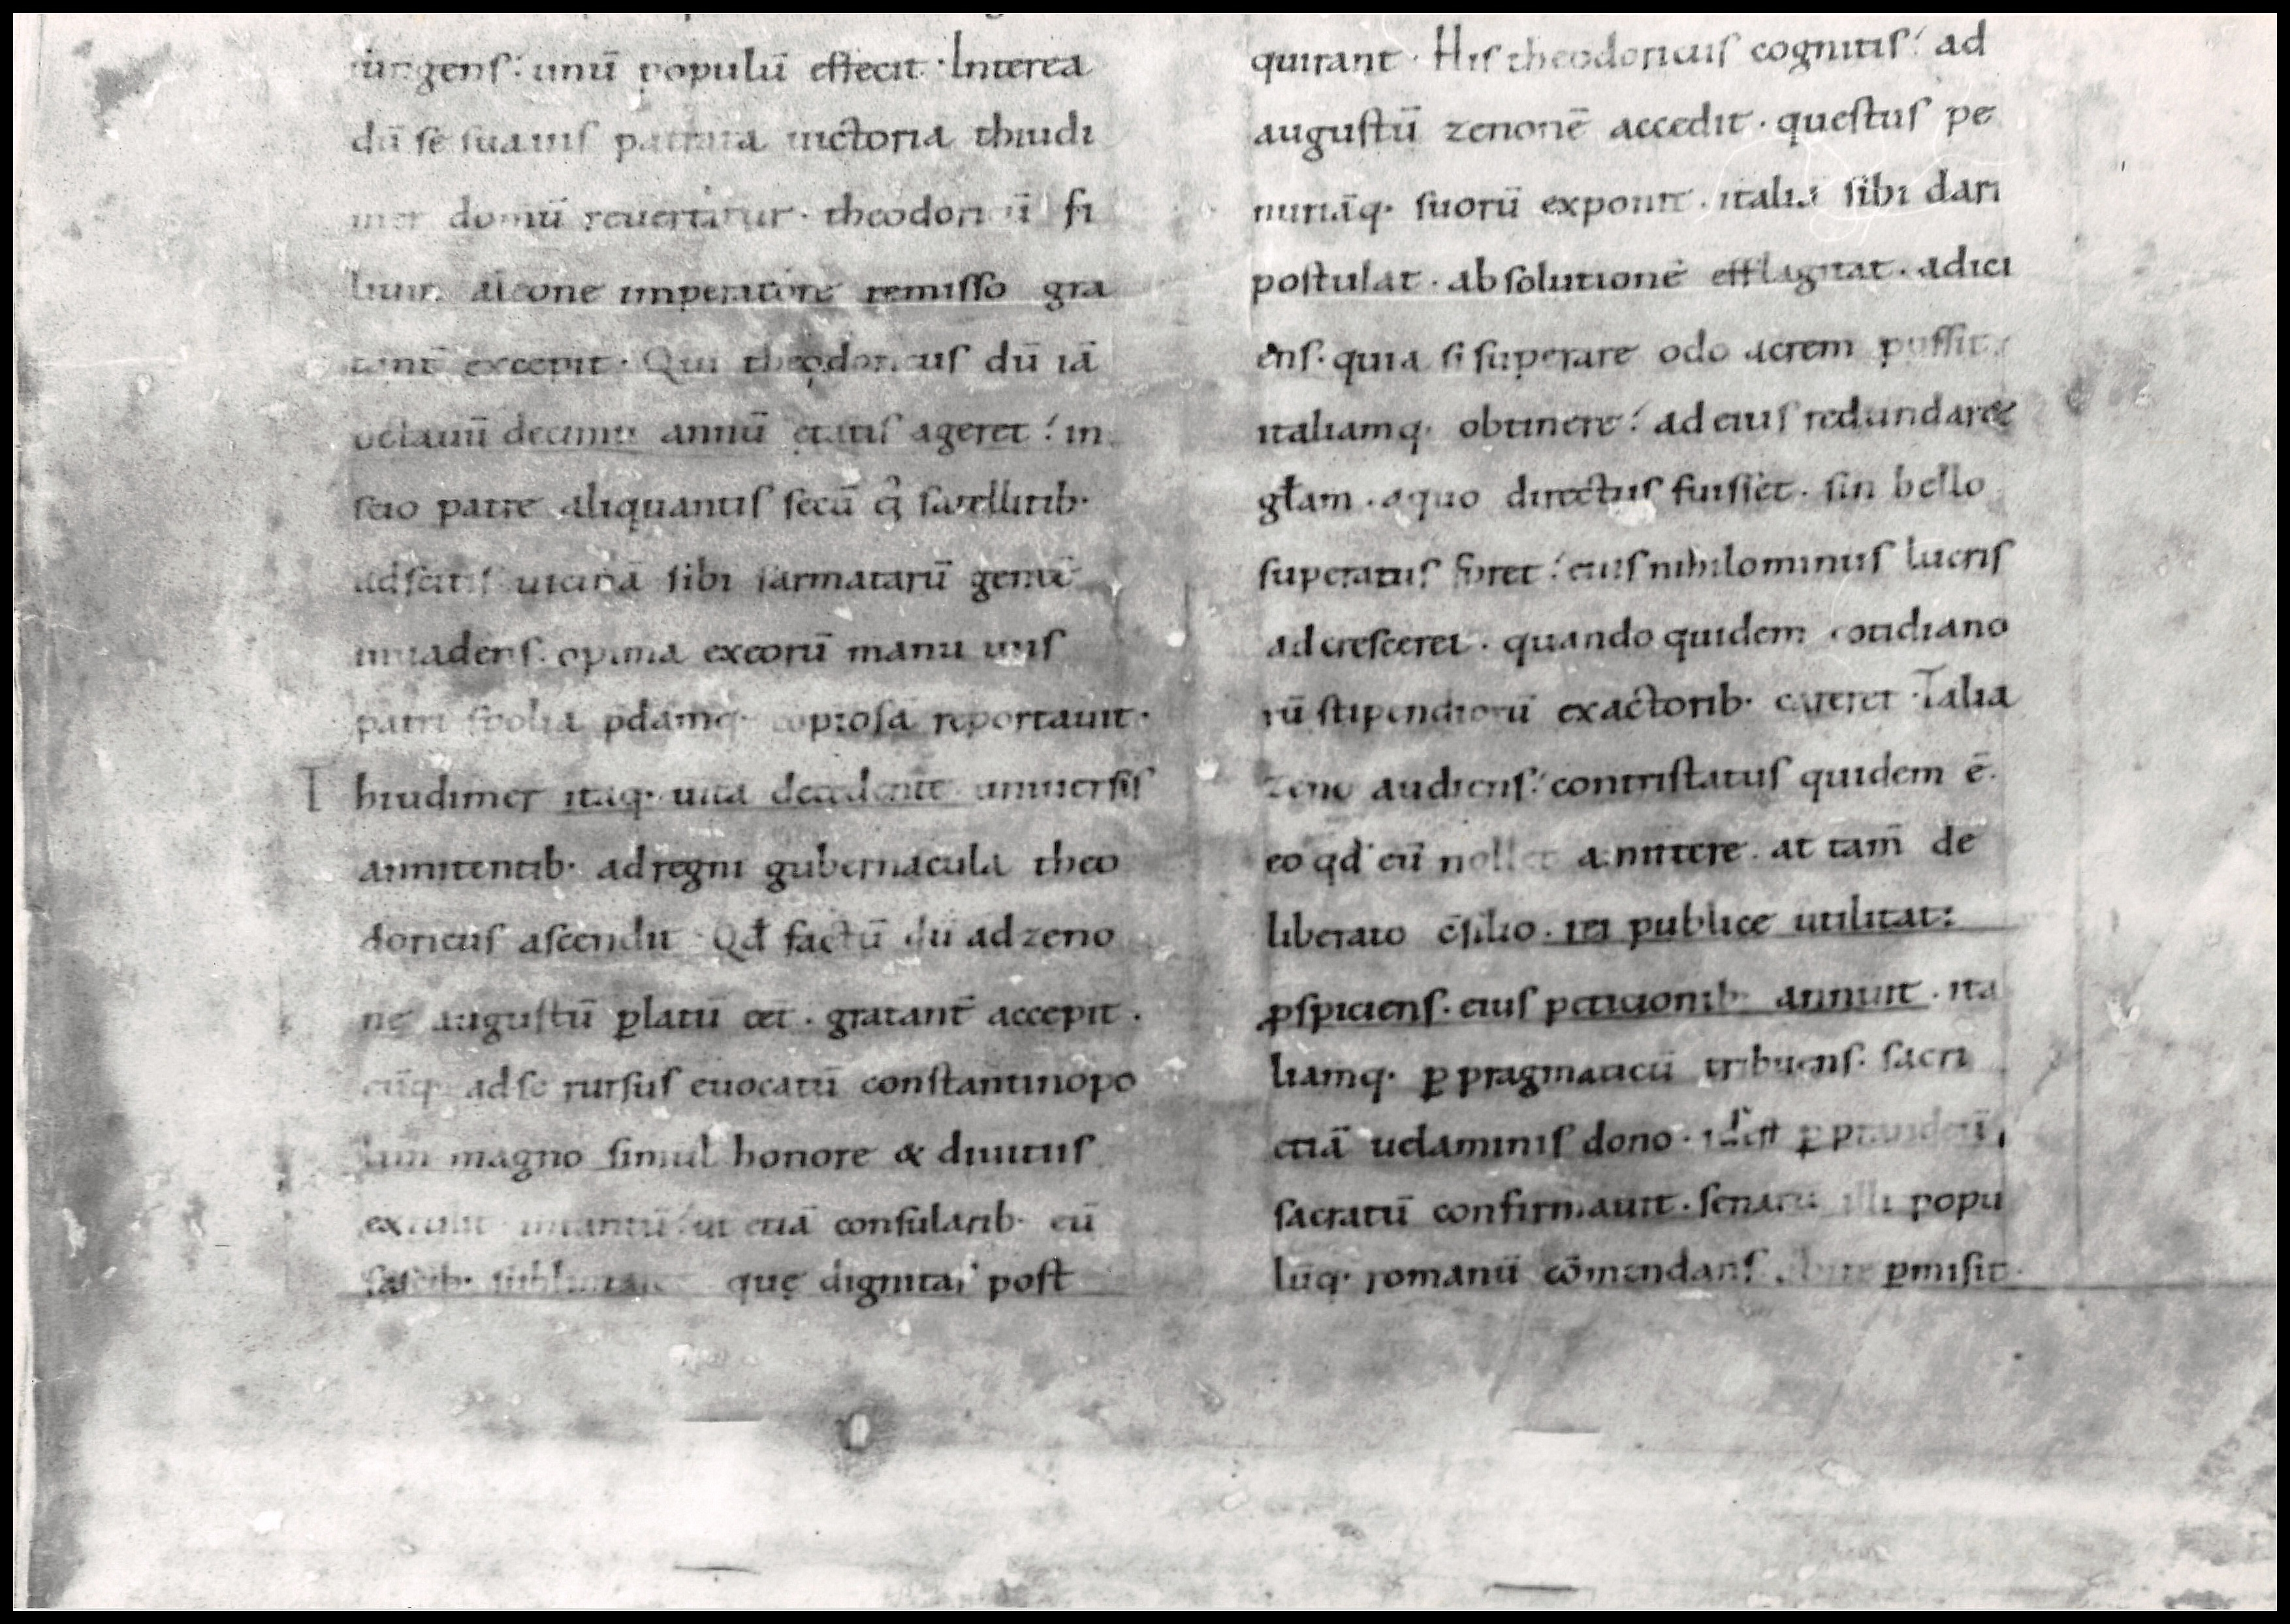 iungens. unū populū effecit. Interea
dū se suauis patrata uictoria thiudi
mer domū reuertitur. theodoricū fi
lium aleone imperatore remisso gra
tant̄ excepit. Qui theodoricus dū iā
octauū decimū annū etatis ageret. in
scio patre aliquantis secū satellitib·
adscitis uicinā sibi sarmatarū gentē
inuadens. opima exeorū manu uiis
patri spolia p̄damq· copiosā reportauit.
Thiudimer itaq· uita decedente uniuersis
annitentib· adregni gubernacula theo
doricus ascendit. Qđ factū dū adzeno
nē augustū ꝑlatū eēt. gratant̄ accepit.
eūq· adse rursus euocatū constantinopo
lim magno simul honore & diuitiis
extulit intantū. ut etiā consularib· eū
fascib· sublimaret quę dignitas post
quirant. His theodoricus cognitis. ad
augustū zenonē accedit. questus pe
nuriāq· suorū exponit. italiā sibi dari
postulat. absolutionē efflagitat. adici
ens. quia si superare odoacrem possit.
italiamq· obtinere. ad eius redundare
głam. aquo directus fuisset. sin bello
superatus foret. eius nihilominus lucris
adcresceret. quando quidem cotidiano
rū stipendiorū exactorib· careret. Talia
zeno audiens. contristatus quidem ē.
eo qđ eū nollet amittere. at tam̄ de
liberato c̄silio. rei publice utilitati
ꝑspiciens. eius peticionib· annuit. ita
liamq· ꝑ pragmaticū tribuens. sacri
etiā uelaminis dono. idest ꝑ
sacratū confirmauit. senatū illi popu
lūq· romanū cōmendans ꝑmisit.